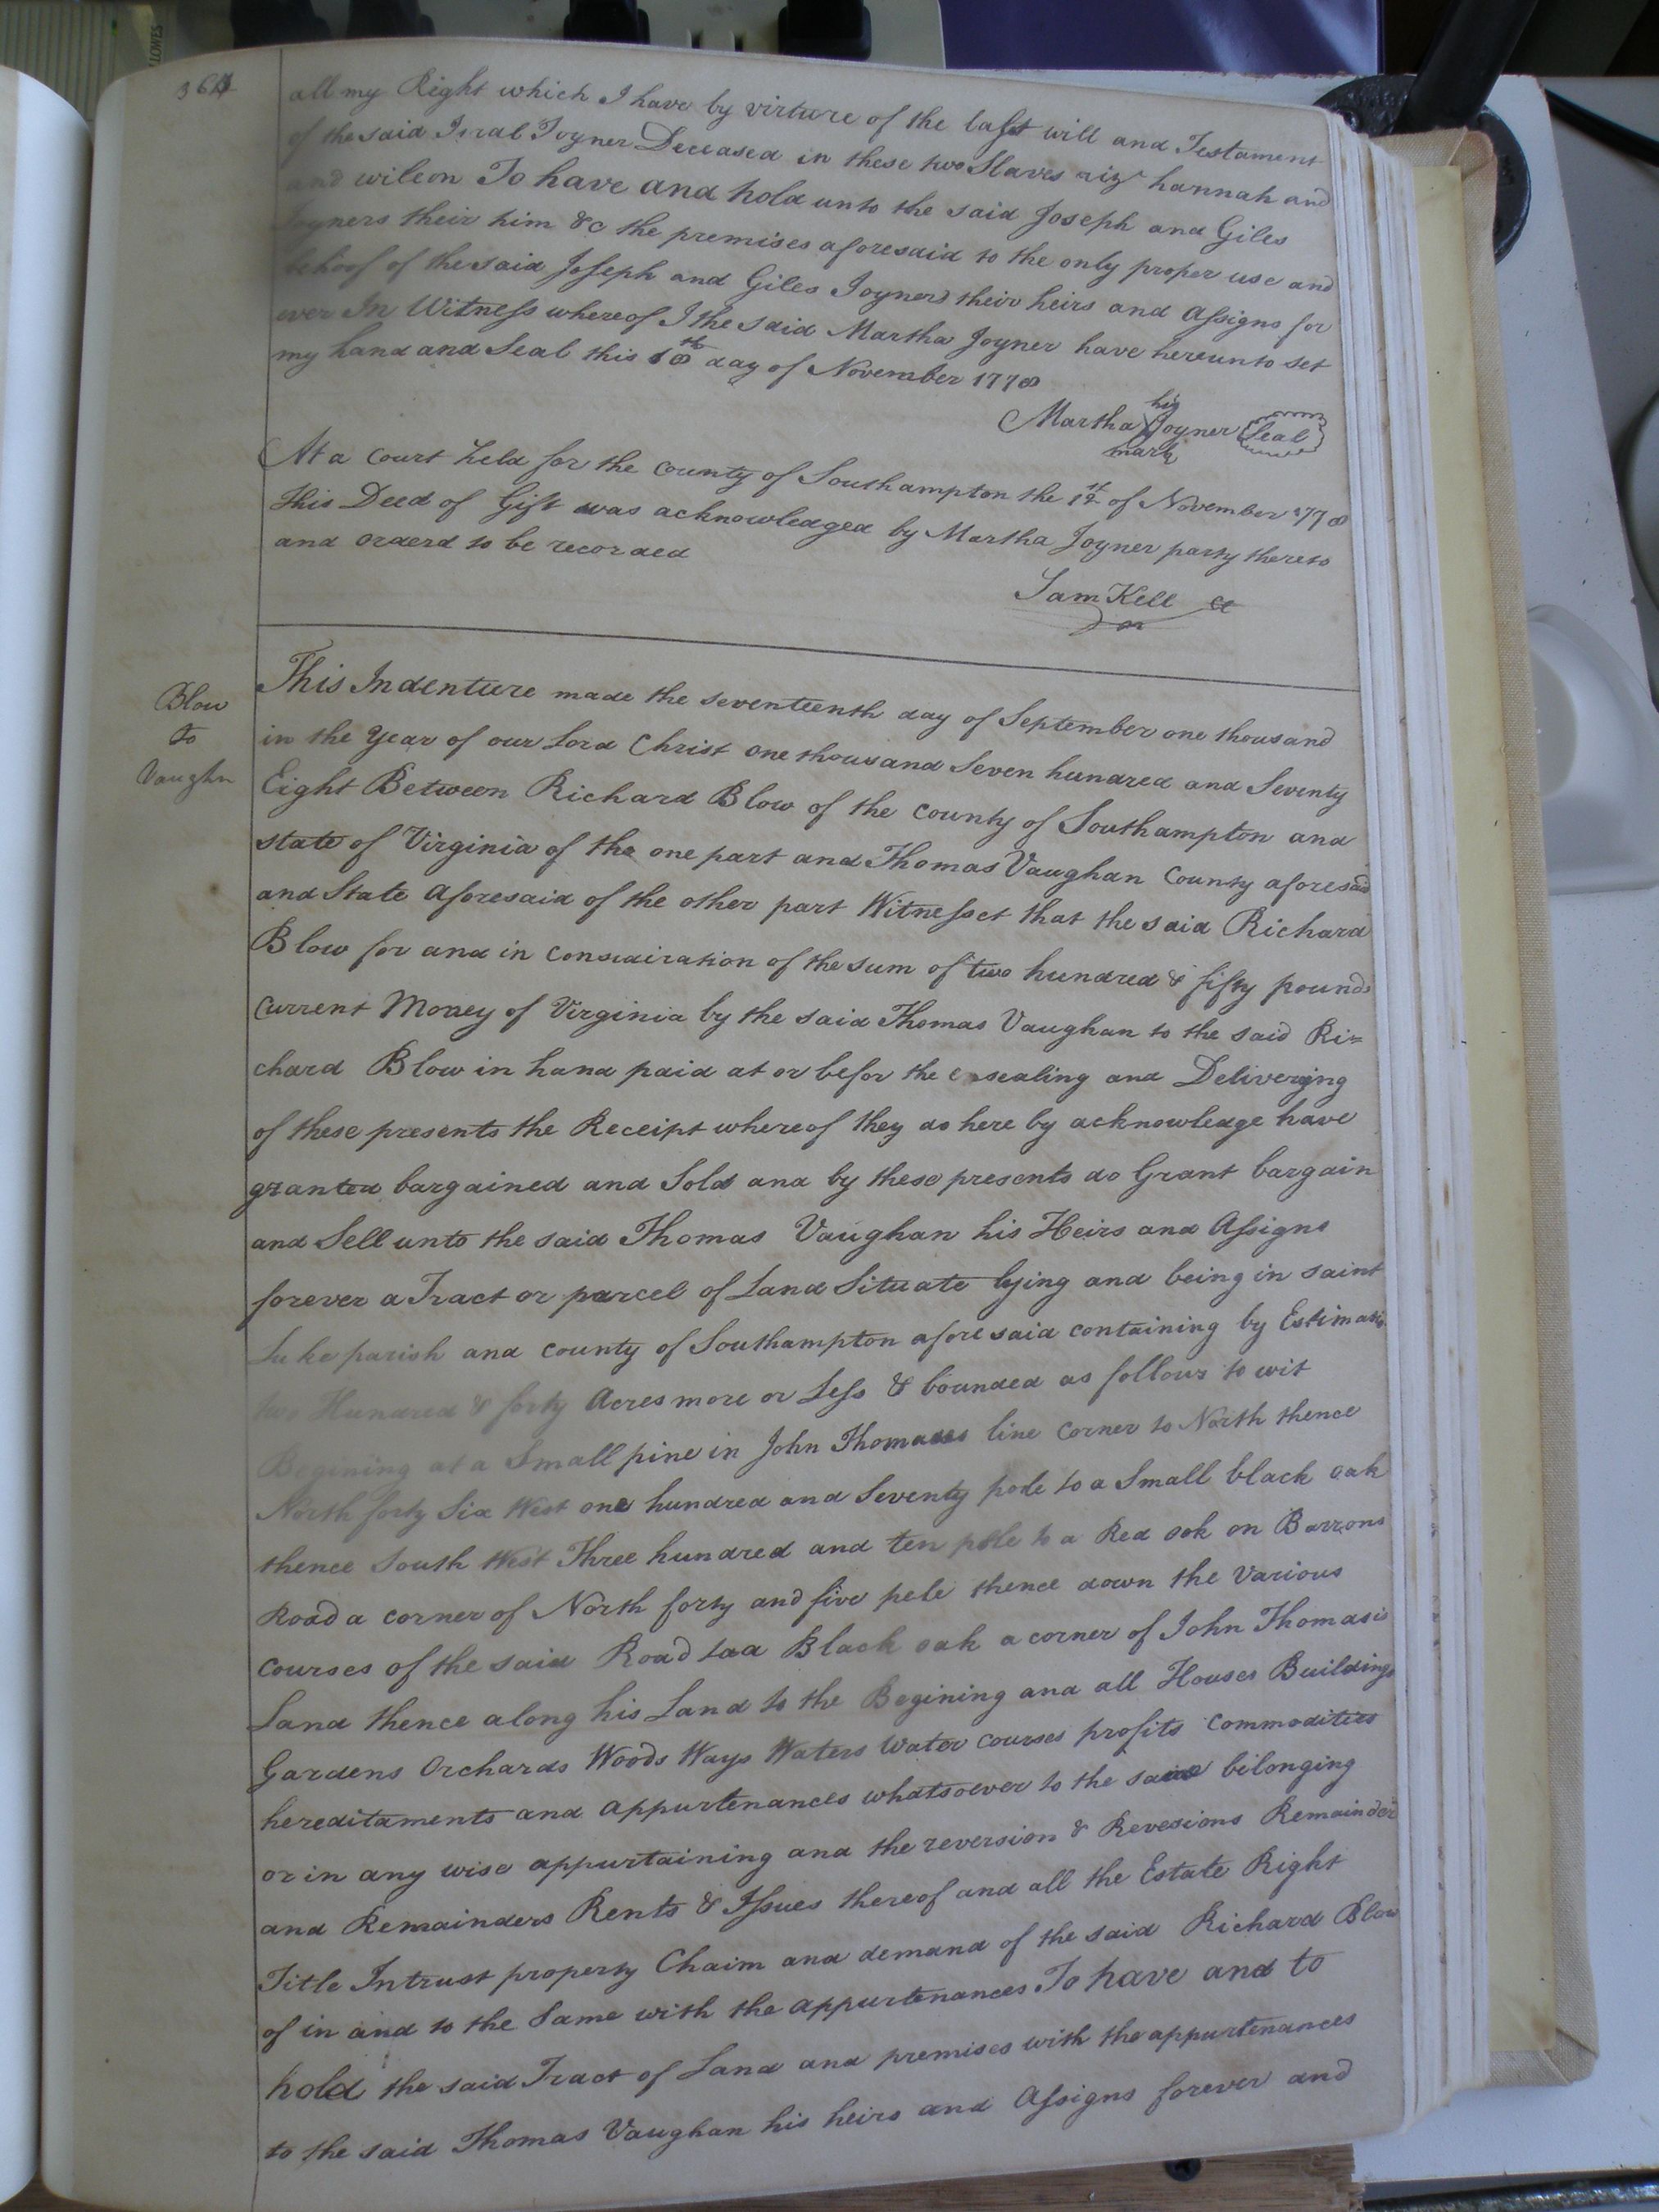 364
all my Right which I have by virture of the last will and Testament
of the said Isral Joyner Deceased in these two Slaves viz hannah and
and wilson To have and hold unto the said Joseph and Giles
Joyners their him &c the premises aforesaid to the only proper use and
behoof of the said Joseph and Giles Joyners their heirs and Assigns for
ever In Witness whereof I the said Martha Joyner have hereunto set
my hand and Seal this 10th day of November 1778
his
Martha Joyner Seal
mark
At a Court held for the County of Southampton the 12th of November 1778
This Deed of Gift was acknowledged by Martha Joyner party thereto
and orderd to be recorded
Sam Kell Cl
Blow
to
Vaughn
This Indenture made the seventeenth day of September one thousand
in the Year of our Lord Christ one thousand Seven hundred and Seventy
Eight Between Richard Blow of the County of Southampton and
state of Virginia of the one part and Thomas Vaughan County aforesaid
and State aforesaid of the other part Witnesset that the said Richard
Blow for and in Considairation of the sum of two hundred & fifty pounds
Current Money of Virginia by the said Thomas Vaughan to the said Ri=
chard Blow in hand paid at or befor the ensealing and Delivering
of these presents the Receipt whereof they do here by acknowledge have
granted bargained and Sold and by these presents do Grant bargain
and Sell unto the said Thomas Vaughan his Heirs and Assigns
forever a Tract or parcel of Land Situate lying and being in saint
Luke parish and County of Southampton afore said containing by Estimati
two Hundred & forty Acres more or Less & bounded as follows to wit
Begining at a Small pine in John Thomases line Corner to North thence
North forty Six West one hundred and Seventy pole to a Small black oak
thence South West Three hundred and ten pole to a Red oak on Barrons
Road a corner of North forty and five pole thence down the Various
Courses of the said Road toa Black oak a corner of John Thomasis
Land thence along his Land to the Begining and all Houses Buildings
Gardens Orchards Woods Ways Waters Water Courses profits Commodities
hereditaments and appurtenances whatsoever to the said bilonging
or in any wise appurtaining and the reversion & Revesions Remainder
and Remainders Rents & Issues thereof and all the Estate Right
Title Intrust property Chaim and demand of the said Richard Blow
of in and to the Same with the appurtenances To have and to
hold the said Tract of Land and premises with the appurtenances
to the said Thomas Vaughan his heirs and Assigns forever and